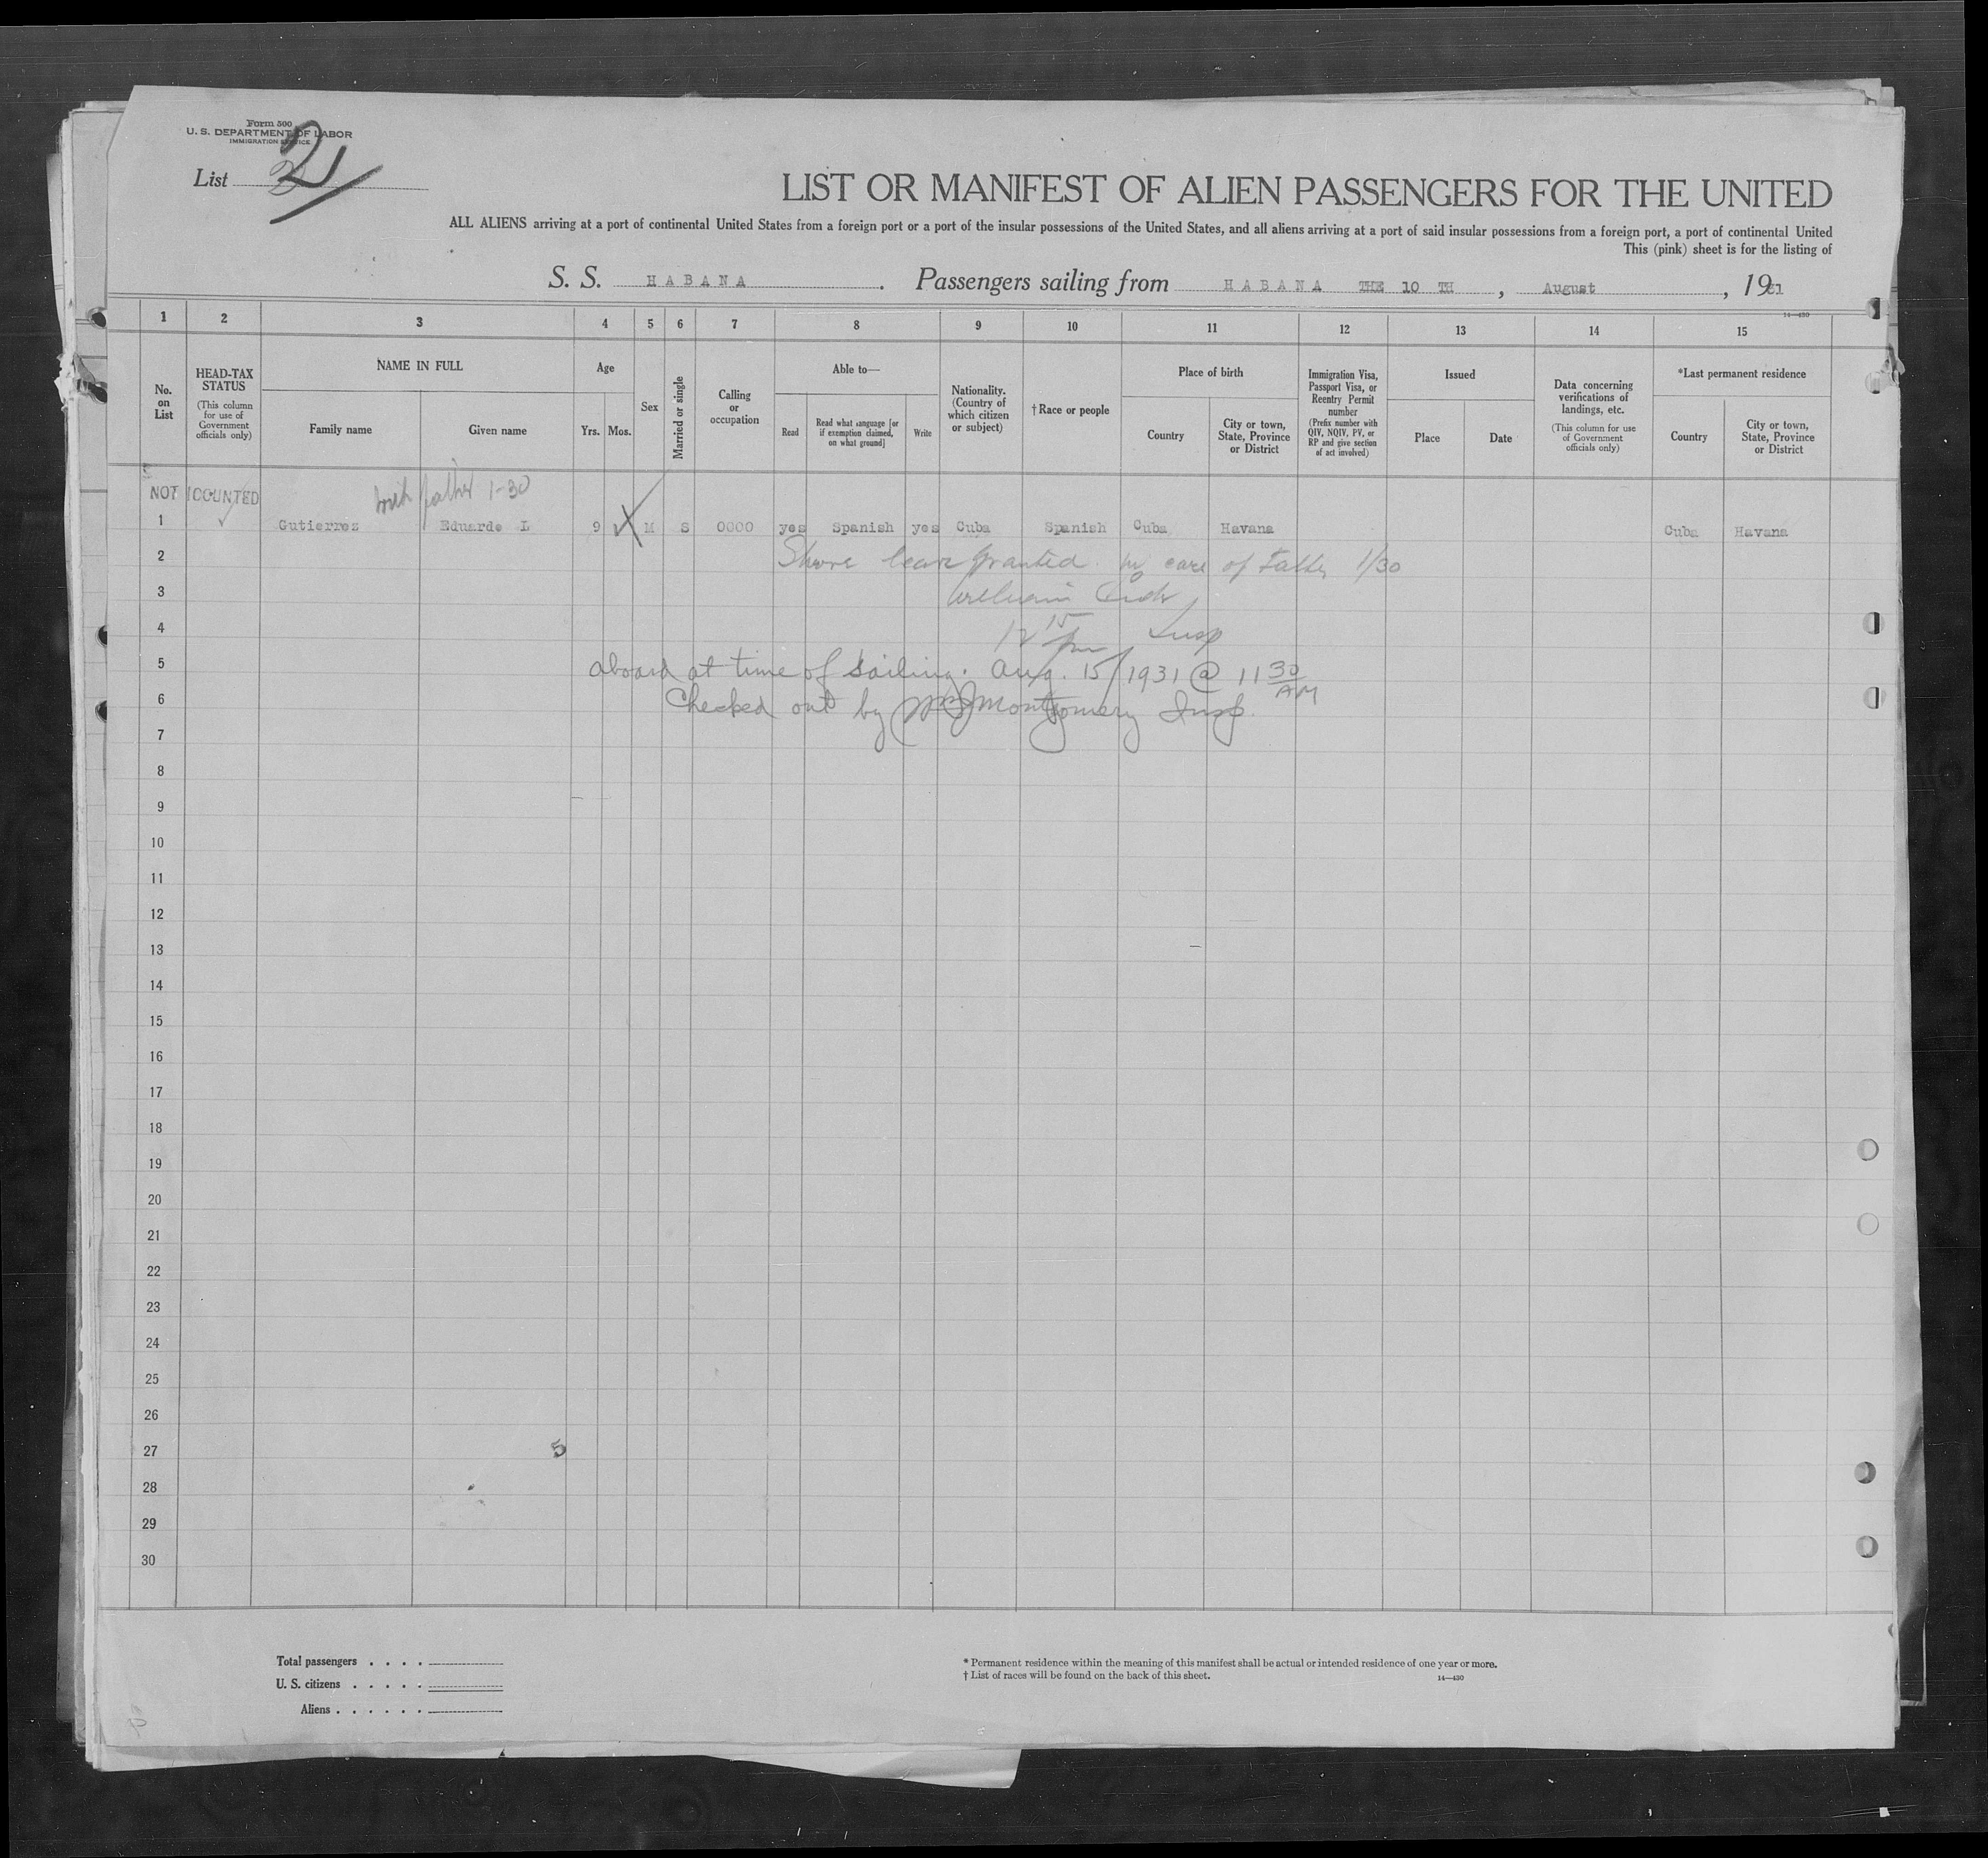 Form 500
U. S. DEPARTMENT OF LABOR
IMMIGRATION SERVICE
List 2
LIST OR MANIFEST OF ALIEN PASSENGERS FOR THE UNITED
ALL ALIENS arriving at a port of continental United States from a foreign port or a port of the insular possessions of the United States, and all aliens arriving at a port of said insular possessions from a foreign port, a port of continental United
This (pink) sheet is for the listing of
S. S. HABANA . Passengers sailing from HABANA THE 10 TH , August , 1931
14—430
1 2 3 4 5 6 7 8 9 10 11 12 13 14 15
No. on List
HEAD-TAX STATUS
(This column for use of Government officials only)
NAME IN FULL
Family name
Given name
Age
Yrs.
Mos.
Sex
Married or single
Calling or occupation
Able to—
Read
Read what language [or if exemption claimed, on what ground]
Write
Nationality. (Country of which citizen or subject)
† Race or people
Place of birth
Country
City or town, State, Province or District
Immigration Visa, Passport Visa, or Reentry Permit number
(Prefix number with QIV, NQIV, PV, or RP and give section of act involved)
Issued
Place
Date
Data concerning verifications of landings, etc.
(This column for use of Government officials only)
*Last permanent residence
Country
City or town, State, Province or District
NOT COUNTED
with father 1-30
1 Gutierrez Eduardo L 9 M S 0000 yes Spanish yes Cuba Spanish Cuba Havana Cuba Havana
2 Shore leave granted in care of Father 1/30
3 William
4 12 15 pm Insp
5 aboard at time of sailing. Aug. 15/1931 @ 11 30 AM
6 Checked out by Montgomery Insp.
7
8
9
10
11
12
13
14
15
16
17
18
19
20
21
22
23
24
25
26
27 5
28
29
30
Total passengers . . . .
U. S. citizens . . . . .
Aliens . . . . . .
* Permanent residence within the meaning of this manifest shall be actual or intended residence of one year or more.
† List of races will be found on the back of this sheet.
14—430